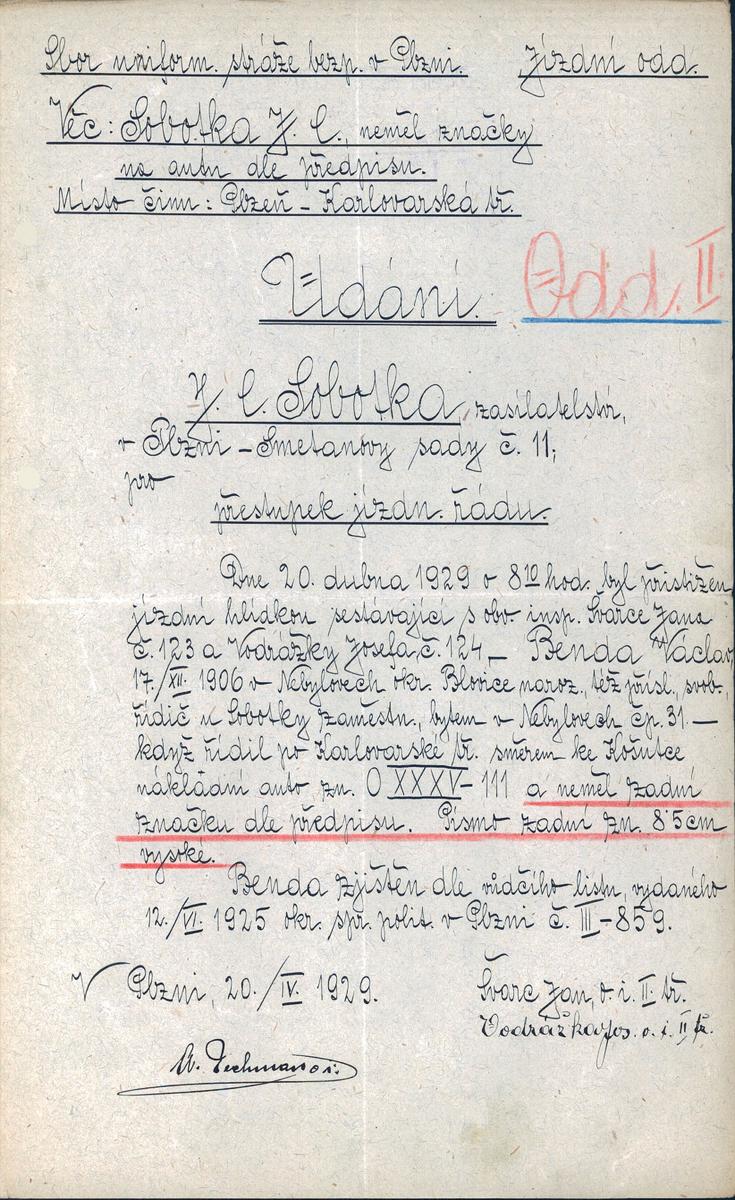 Sbor uniform. stráže bezp. v Plzni. Jízdní odd.
Věc: Sobotka J. C., neměl značky
na autu dle předpisu.
Místo činu: Plzeň - Karlovarská tř.
Udání. Odd. II.
J. C. Sobotka, zasílatelství,
v Plzni - Smetanovy sady č. 11,
pro
přestupek jízdn. řádu.
Dne 20. dubna 1929 o 8 10 hod. byl přistižen
jízdní hlídkou sestávající s obv. insp. Švarce Jana
č. 123 a Vodrážky Josefa, č. 124 - Benda Václav,
17./XII. 1906 v Nebylovech okr. Blovice naroz., též přísl., svob.,
řidič u Sobotky zaměstn., bytem v Nebylovech čp. 31 -
když řídil po Karlovarské tř. směrem ke Košutce
nákládní auto, zn. O XXXV - 111 a neměl zadní
značku dle předpisu. Písmo zadní zn. 8·5 cm
vysoké.
Benda zjištěn dle vůdčího listu, vydaného
12./VI. 1925 okr. spr. polit. v Plzni č. III - 859.
V Plzni, 20./IV. 1929. Švarc Jan, o. i. II. tř.
Vodrážka Jos. o. i. II tř.